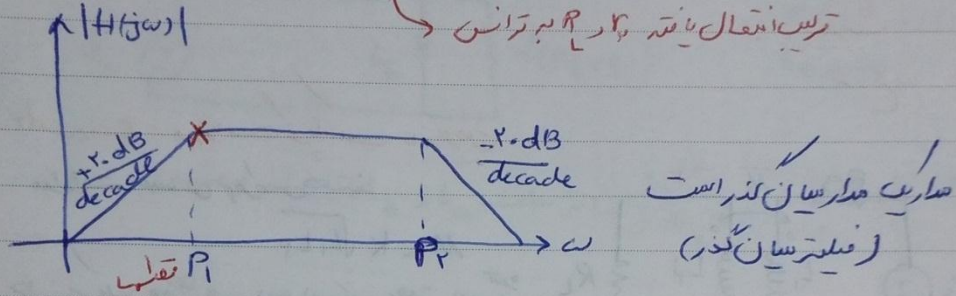 |H(jω)|
ترکیب انتقال یافته r₂ و R_L به ترانس
+۲۰dB
decade
-۲۰dB
decade
مدار یک مدار میان گذر است
(فیلتر میان گذر)
قطبها P₁
P₂
ω